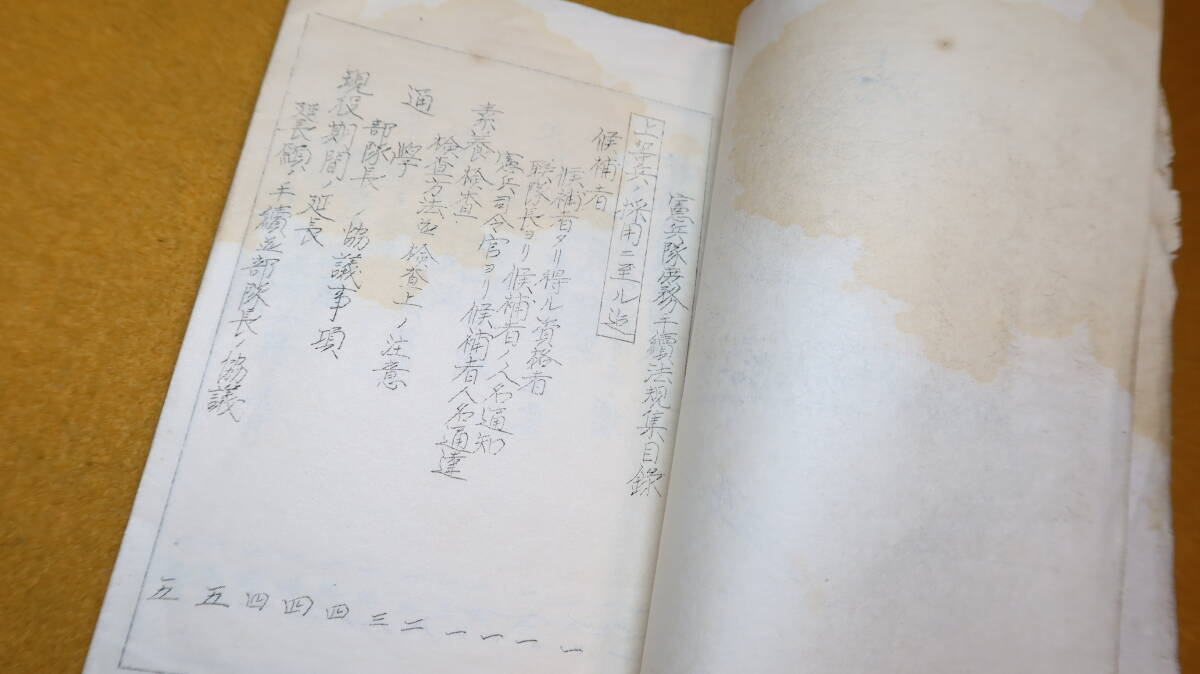 憲兵隊服務手續法規集目録
上等兵ノ採用ニ至ル迄
候補者
候補者タリ得ル資格者
聯隊長ヨリ候補者ノ人名通知
憲兵司令官ヨリ候補者人名通達
素養檢査
檢査方法並檢査上ノ注意
通學
部隊長ノ協議事項
現役期間ノ延長
延長願ノ手續並部隊長ノ協議
一
一
一
一
二
三
四
四
四
五
五